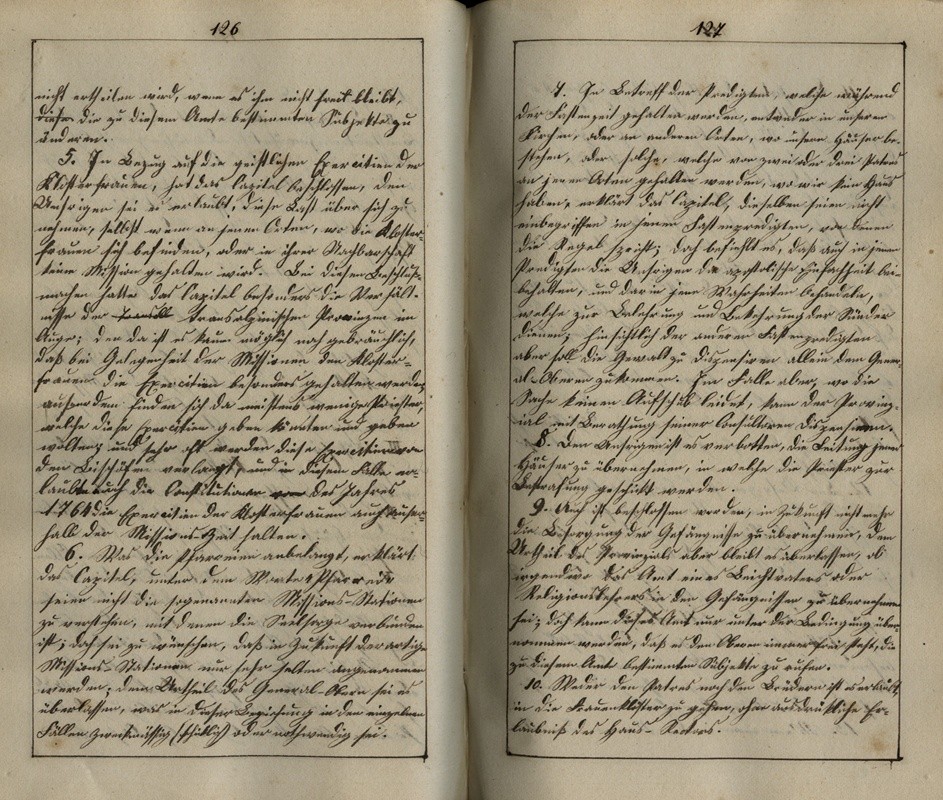 126
nicht ertheilen wird, wenn es ihm nicht freit bleibt,
dieser die zu diesem Amte bestimmten Subjekte zu
ändern.
5. In Bezug auf die geistlichen Exercitien der
Klosterfrauen, hat das Capitel beschlossen, den
Unsrigen sei es erlaubt, diese Last über sich zu
nehmen, selbst wenn an jenen Orten, wo die Kloster-
frauen sich befinden, oder in ihrer Nachbarschaft
keine Mission gehalten wird. Bei diesem Beschluß-
machen hatte das Capitel besonders die Verhält-
nisse der transalpinischen Provinzen im
Auge; denn da ist es kaum möglich noch gebräuchlich,
daß bei Gelegenheit der Missionen den Kloster-
frauen die Exercitien besonders gehalten werden,
außerdem finden sich da meistens wenige Priester,
welche diese Exercitien geben könnten und geben
wollten; und sehr oft werden diese Exercitien von
den Bischöfen verlangt, und in diesem Falle er-
lauben auch die Constitutionen des Jahres
1764 die Exercitien der Klosterfrauen auch außer-
halb der Missions-Zeit halten.
6. Was die Pfarreien anbelangt, erklärt
das Capitel, unter dem Worte „Pfarreien“
seien nicht die sogenannten Missions-Stationen
zu verstehen, mit denen die Seelsorge verbunden
ist; doch sei zu wünschen, daß in Zukunft derartige
Missions-Stationen nur sehr selten angenommen
werden; dem Urtheil des General-Obern sei es
überlassen, was in dieser Beziehung in den einzelnen
Fällen zweckmässig (schicklich) oder nothwendig sei.
127
7. In Betreff der Predigten, welche während
der Fastenzeit gehalten werden, entweder in unseren
Kirchen, oder an anderen Orten, wo unsere Häuser be-
stehen, oder solche, welche von zwei oder drei Patres
an jenen Orten gehalten werden, wo wir kein Haus
haben, erklärt das Capitel, dieselben seien nicht
einbegriffen in jenen Fastenpredigten, von denen
die Regel spricht; doch befiehlt es, daß auch in jenen
Predigten die Unsrigen die apostolische Einfachheit bei-
behalten, und darin jene Wahrheiten behandeln,
welche zur Belehrung und Bekehrung der Sünder
dienen; hinsichtlich der anderen Fastenpredigten
aber soll die Gewalt zu dispensiren allein dem Gener-
al-Oberen zukommen. Im Falle aber, wo die
Sache keinen Aufschub leidet, kann der Provinz-
ial mit Berathung seiner Consultoren dispensiren.
8. Den Unsrigen ist es verbotten, die Leitung jener
Häuser zu übernehmen, in welche die Priester zur
Bestrafung geschickt werden.
9. Auch ist beschlossen worden, in Zukunft nicht mehr
die Besorgung der Gefängnisse zu übernehmen, dem
Urtheil des Provinzials aber bleibt es überlassen, ob
irgendwo das Amt eines Beichtvaters oder
Religionslehrers in den Gefängnissen zu übernehmen
sei; doch kann dieses Amt nur unter der Bedingung über-
nommen werden, daß es den Obern immer frei steht, die
zu diesem Amt bestimmten Subjekte zu rufen.
10. Weder den Patres noch den Brüdern ist es erlaubt,
in die Frauenklöster zu gehen, ohne ausdrückliche Er-
laubniß des Haus-Rectors.